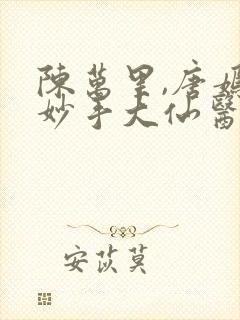 陳萬里,唐嫣
妙手大仙醫
安苡莫